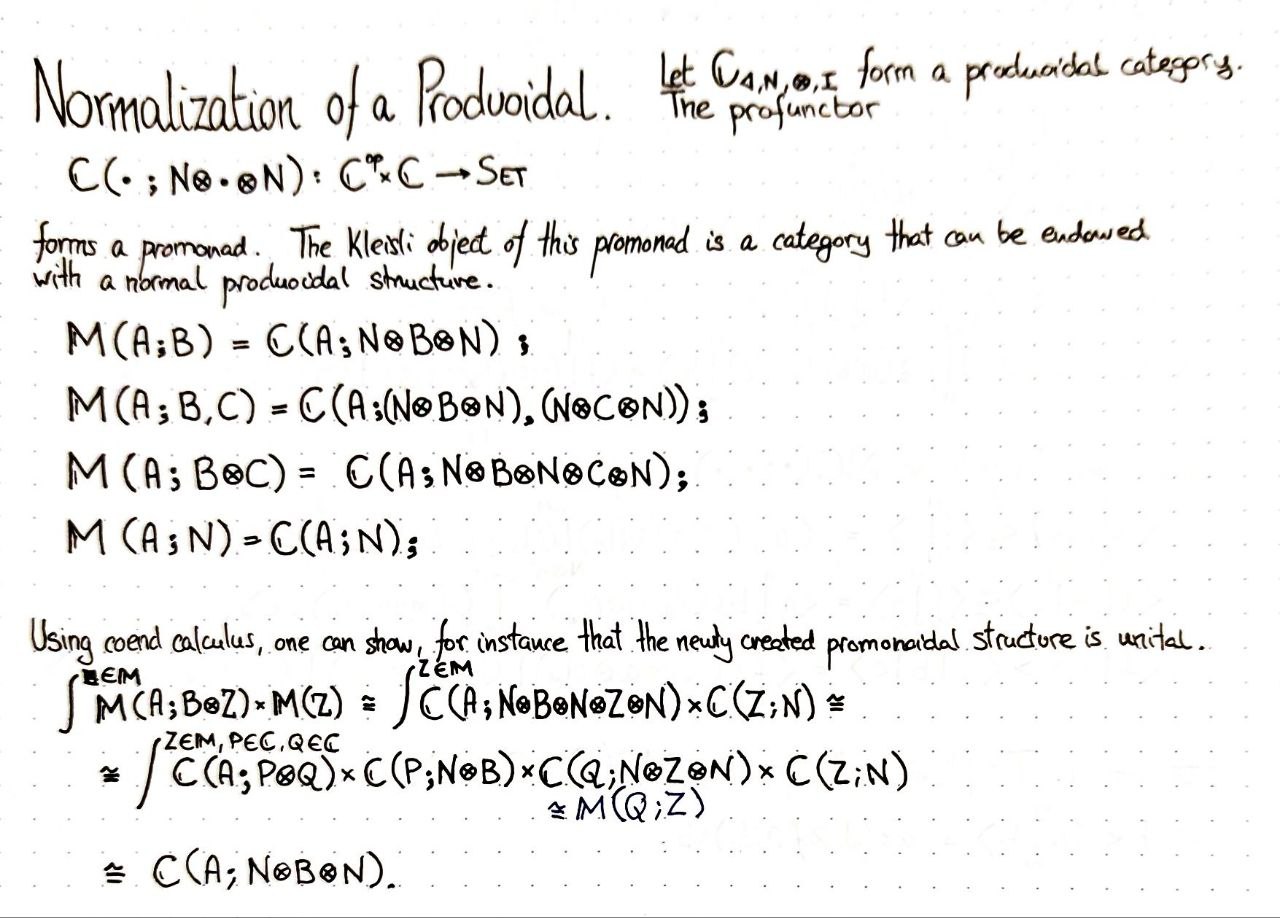 Normalization of a Produoidal.
Let ℂ◁,N,⊗,I form a produoidal category.
The profunctor
ℂ(• ; N⊗•⊗N) : ℂᵒᵖ×ℂ → SET
forms a promonad. The Kleisli object of this promonad is a category that can be endowed
with a normal produoidal structure.
𝕄(A;B) = ℂ(A;N⊗B⊗N) ;
𝕄(A;B◁C) = ℂ(A;(N⊗B⊗N)◁(N⊗C⊗N));
𝕄(A;B⊗C) = ℂ(A;N⊗B⊗N⊗C⊗N);
𝕄(A;N) = ℂ(A;N);
Using coend calculus, one can show, for instance that the newly created promonoidal structure is unital.
∫^{Z∈𝕄} 𝕄(A;B⊗Z) × 𝕄(Z) ≅ ∫^{Z∈𝕄} ℂ(A;N⊗B⊗N⊗Z⊗N) × ℂ(Z;N) ≅
≅ ∫^{Z∈𝕄, P∈ℂ, Q∈ℂ} ℂ(A;P⊗Q) × ℂ(P;N⊗B) × ℂ(Q;N⊗Z⊗N) × ℂ(Z;N)
≅ 𝕄(Q;Z)
≅ ℂ(A;N⊗B⊗N).